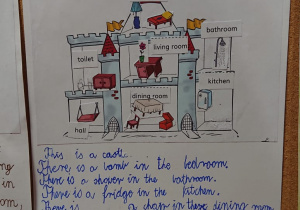 bathroom
living room
toilet
kitchen
dining room
hall
This is a castl...
There is a lamb in the bedroom.
There is a shower in the bathroom.
There is a fridge in the kitchen.
There is a chair in these dining room
in